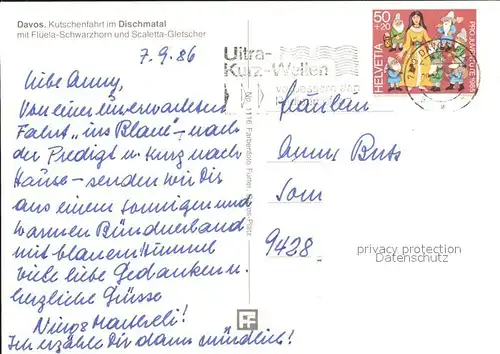 Davos. Kutschenfahrt im Dischmatal
mit Flüela-Schwarzhorn und Scaletta-Gletscher
7.9.86
Liebe Anny,
Von einer unerwarteten
Fahrt "ins Blaue" – nach
der Predigt u. kurz nach
Hause – senden wir Dir
aus einem sonnigen und
warmen Bündnerland
mit blauem Himmel
viele liebe Gedanken u.
herzliche Grüsse
Ich erzähle Dir dann mündlich!
No. 1116 Farbenfoto Furter, Davos-Platz
Ultra-
Kurz-Wellen
verbessern den
50
+20
HELVETIA
PRO JUVENTUTE 198
Fräulein
Anny
9428
privacy protection
Datenschutz